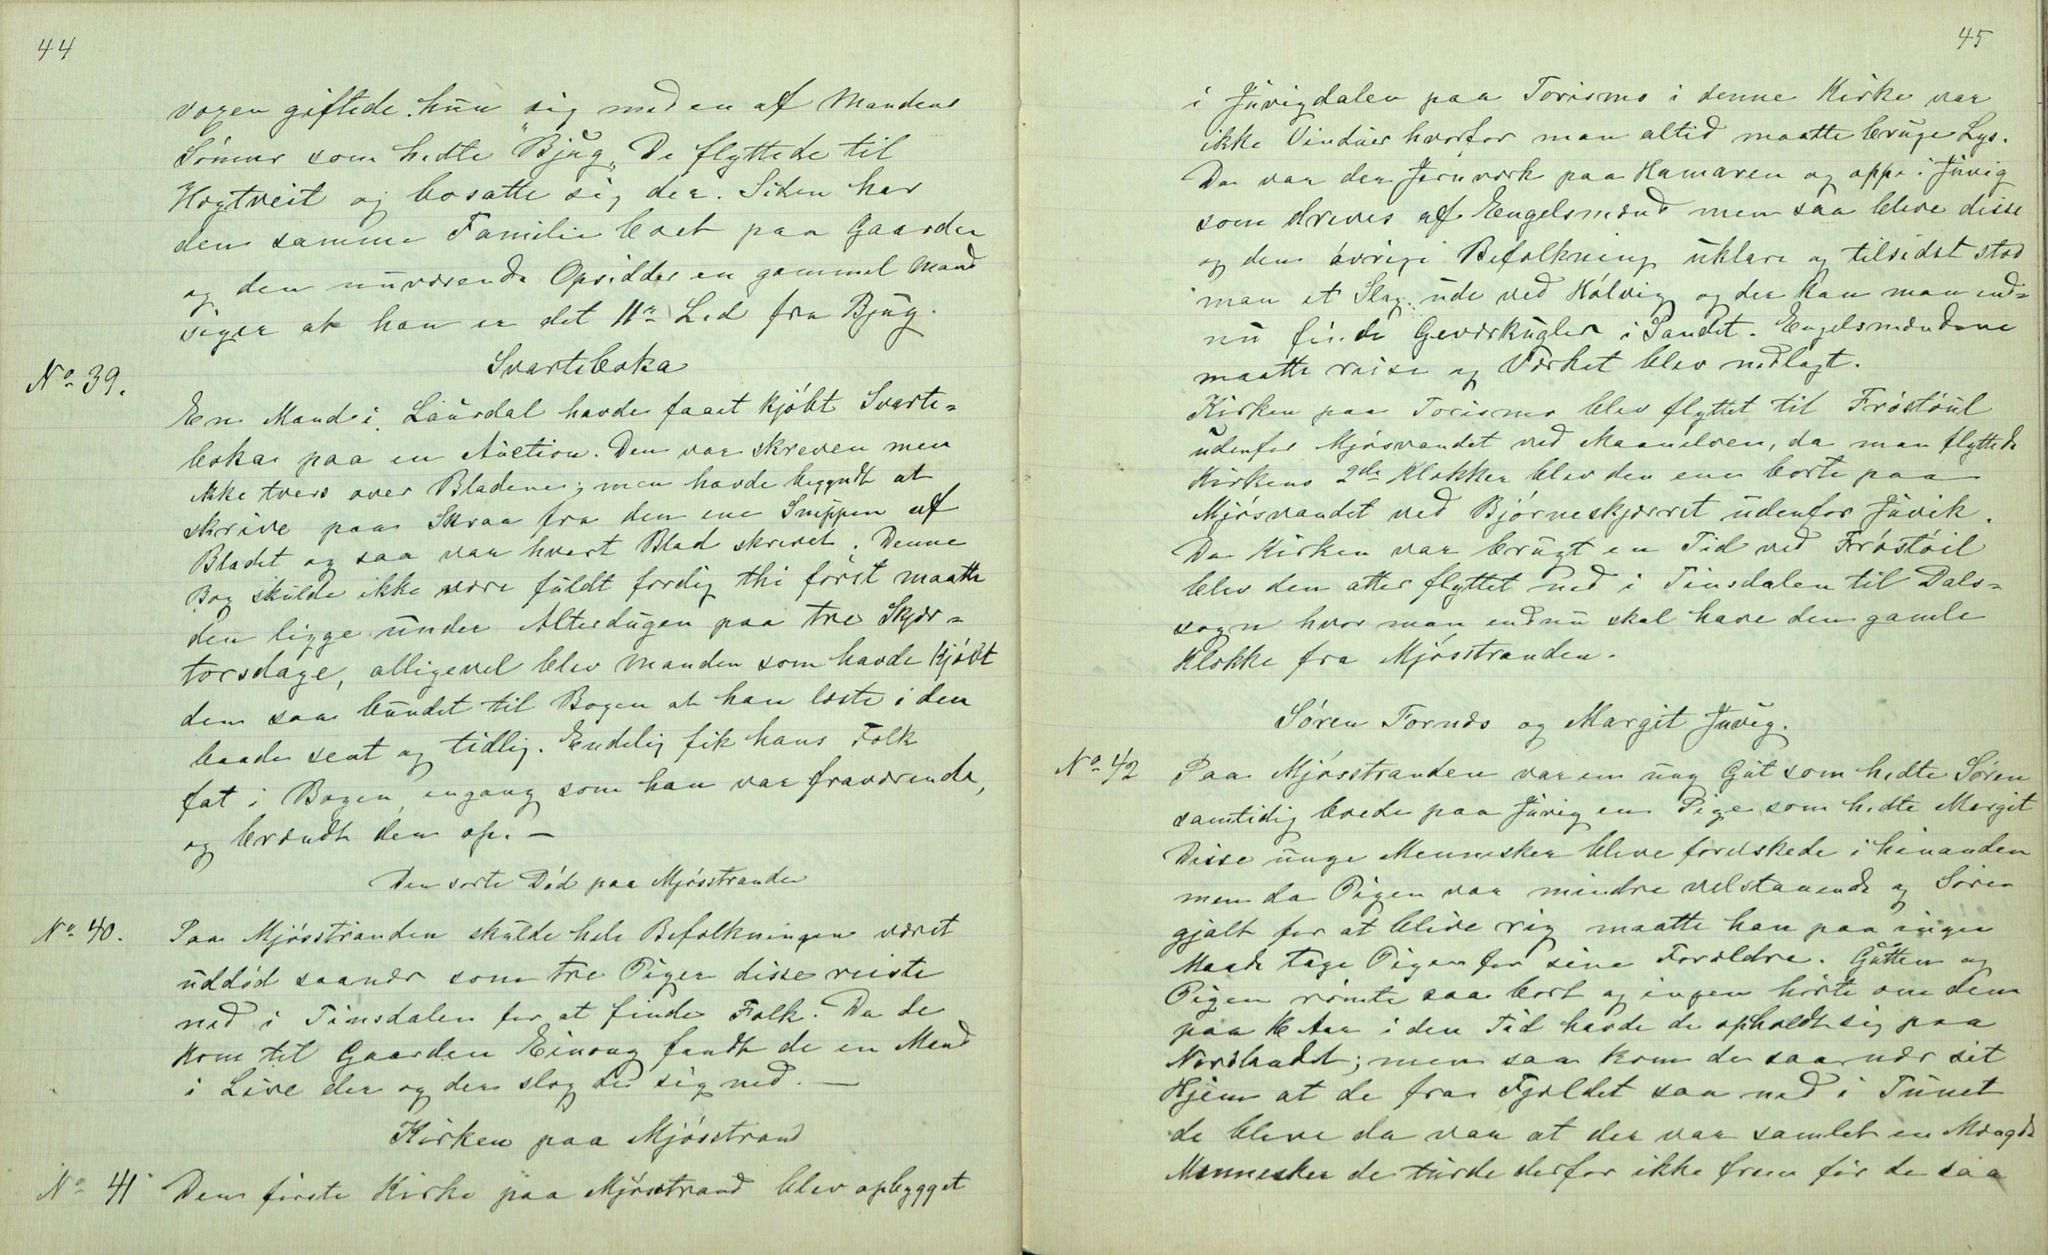 44
voxen giftede hun sig med en af Mandens
Sønner som hedte "Bjug" De flyttede til
Høgtveit og bosatte sig der. Siden har
den samme Familie boet paa Gaarden
og den nuværende Opsidder en gammel Mand
siger at han er det 11te Led fra Bjug.
Svarteboka
No 39.
En Mand i Laurdal havde faaet kjøbt Svarte=
boka paa en Auction. Den var skreven men
ikke tvers over Bladene; men havde begyndt at
skrive paa Skraa fra den ene Snippen af
Bladet og saa var hvert Blad skrevet. Denne
Bog skulde ikke være fuldt færdig thi først maatte
den ligge under Alterdugen paa tre Skjær=
torsdage, alligevel blev Manden som havde kjøbt
den saa bundet til Bogen at han læste i den
baade sent og tidlig. Endelig fik hans Folk
fat i Bogen engang som han var fraværende,
og brændt den op. —
Den sorte Død paa Mjøsstranden
No 40.
Paa Mjøsstranden skulde hele Befolkningen været
uddød saanær som tre Piger disse reiste
ned i Tinsdalen for at finde Folk. Da de
kom til Gaarden Einong fandt de en Mand
i Live der og der slog de sig ned. —
Kirken paa Mjøsstrand
No 41
Den første Kirke paa Mjøsstrand blev opbygget
45
i Juvigdalen paa Torismo i denne Kirke var
ikke Vinduer hvorfor man altid maatte bruge Lys.
Da var der Jernværk paa Hamaren og oppe i Juvig
som dreves af Engelsmænd men saa bleve disse
og den øvrige Befolkning uklare og tilsidst stod
man et Slag ude ved Hólvig og der kan man end=
nu finde Geværkugler i Sandet. Engelsmændene
maatte reise og Værket blev nedlagt.
Kirken paa Torismo blev flyttet til Frøstøul
udenfor Mjøsvandet ved Maanelven, da man flyttede
Kirkens 2de Klokker blev den ene borte paa
Mjøsvandet ved Bjørneskjærret udenfor Juvik.
Da Kirken var brugt en Tid ved Frøstøil
blev den atter flyttet ned i Tinsdalen til Dals=
sogn hvor man endnu skal have den gamle
Klokke fra Mjøsstranden.
Søren Fornæs og Margit Juvig.
No 42
Paa Mjøsstranden var en ung Gut som hedte Søren
samtidig boede paa Juvig en Pige som hedte Margit
Disse unge Mennesker bleve forelskede i hinanden
men da Pigen var mindre velstanende og Søren
gjalt for at blive rig maatte han paa ingen
Maade tage Pigen for sine Forældre. Gutten og
Pigen rømte saa bort og ingen hørte om dem
paa Aar i den Tid havde de opholdt sig paa
men saa kom de saa nær sit
Hjem at de fra Fjeldet saa ned i Tunet
de bleve da var at der var samlet en Mængde
Mennesker de turde derfor ikke frem før de saa